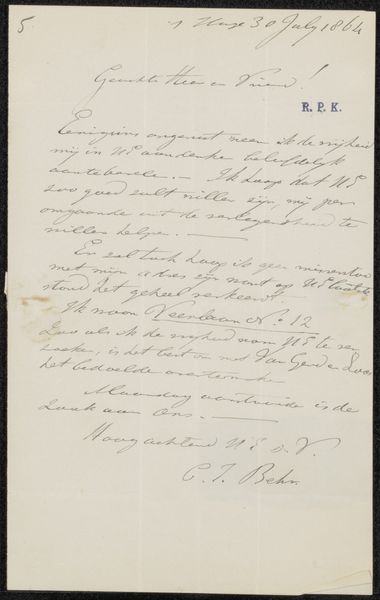 5
s Hage 30 July 1864
Geachte Heer en Vriend!
R. P. K.
Eenigzins ongerust neem ik de vrijheid
mij in UE aandenken beleefdelijk
aantebevelen. — Ik hoop dat UE
zoo goed zult willen zijn, mij per
omgaande uit de verlegenheid te
willen helpen. —
Er zal toch hoop ik geen
met mijn adres zijn want op UE laatste
stond het geheel verkeerd.
Ik woon Veenlaan No. 12
Zoo als ik de vrijheid nam UE te ver
zoeken, is het best om met Van Gend en Loos
het bedoelde
Maandag is de
zaak aan Ons. —
Hoogachtend UE d. V.
C. J. Behr.